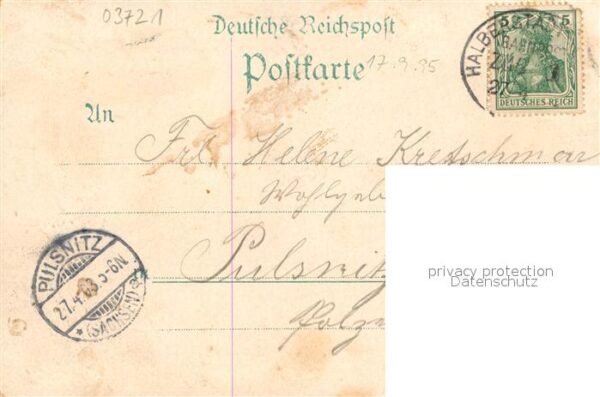 03721
Deutsche Reichspost
Postkarte
17.9.95
An
Frl. Helene Kretschmar
Wohlgeb
Pulsnitz
HALBERSTA
5
DEUTSCHES REICH
PULSNITZ
27.4.03 5-6N
*(SACHSEN)
privacy protection
Datenschutz